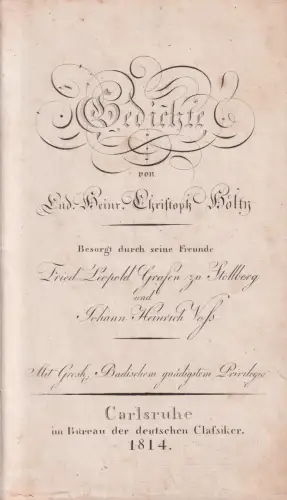 Gedichte
von
Lud. Heinr. Christoph Hölty
Besorgt durch seine Freunde
Fried. Leopold Grafen zu Stollberg
und
Johann Heinrich Voſs
Mit Grosh. Badischem gnädigstem Privilegio
Carlsruhe
im Büreau der deutschen Claſsiker.
1814.